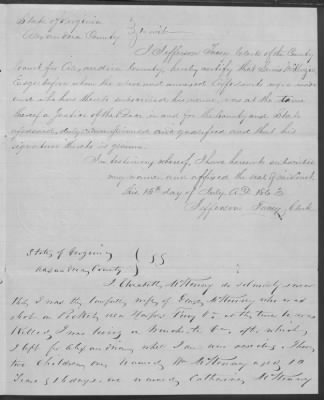 State of Virginia
Alexandria County } To wit
I Jefferson Tacey Clerk of the County
Court for Alexandria County, hereby certify that Lewis McKenzie
Esqr before whom the above and annexed affidavits were made
and who has thereto subscribed his name, was at the time
thereof a Justice of the Peace in and for the County and State
aforesaid, duly commissioned and qualified and that his
signature thereto is genuine.
In testimony whereof, I have hereunto subscribed
my name and affixed the seal of said Court
this 15th day of July A.D. 1863
Jefferson Tacey, Clerk
State of Virginia
Alexandria County } SS
I Elizabeth McKenny do solemnly swear
that I was the lawfully wife of McKenny who was
shot on Picket near Harpers Ferry Va at the time he was
killed, I was living in Va, after which
I left for Alexandria where I am now residing. I have
two Children one named Wm McKenny aged 10
Years & 16 days. one named Catharine McKenny